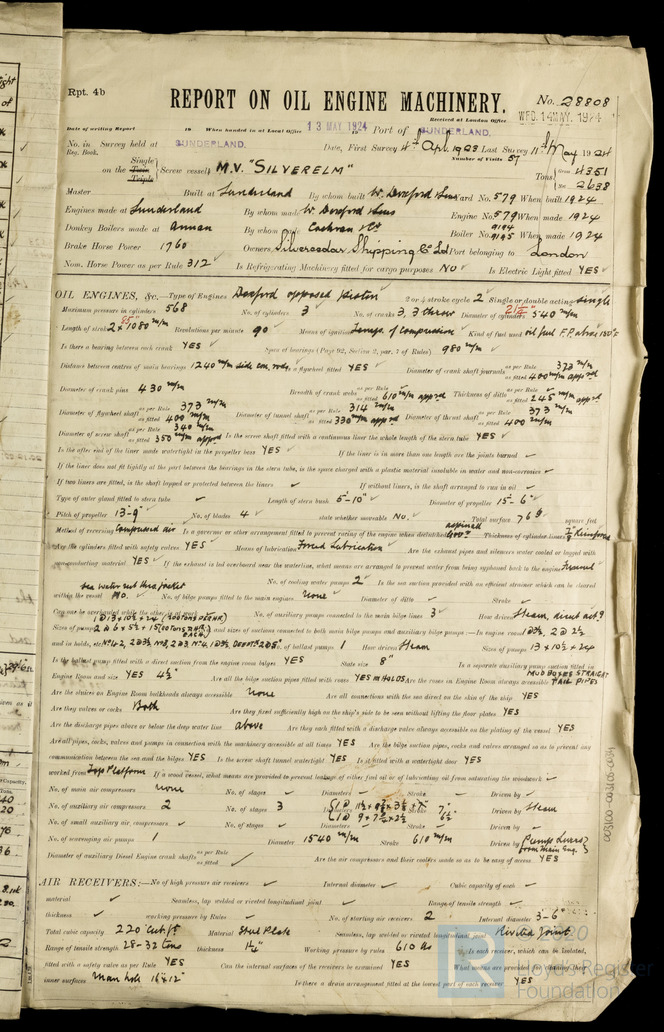 Rpt. 4b
REPORT ON OIL ENGINE MACHINERY.
No. 28808
Received at London Office
WED. 14 MAY. 1924
Date of writing Report 19 When handed in at Local Office 13 MAY 1924 19 Port of SUNDERLAND.
No. in Survey held at SUNDERLAND. Date, First Survey 4th Apl. 1923 Last Survey 11th May 1924
Reg. Book. Number of Visits 57
on the Single Twin Triple Screw vessel M.V. "SILVERELM" Tons Gross 4351 Net 2638
Master Built at Sunderland By whom built W. Doxford & Sons Yard No. 579 When built 1924
Engines made at Sunderland By whom made W. Doxford & Sons Engine No. 579 When made 1924
Donkey Boilers made at Annan By whom Cochran & Co Boiler No. 9194 9195 When made 1924
Brake Horse Power 1760 Owners Silvercedar Shipping Co Ld Port belonging to London
Nom. Horse Power as per Rule 312 Is Refrigerating Machinery fitted for cargo purposes NO Is Electric Light fitted YES
OIL ENGINES, &c.—Type of Engines Doxford opposed piston 2 or 4 stroke cycle 2 Single or double acting single
Maximum pressure in cylinders 568 No. of cylinders 3 No. of cranks 3, 3 throw Diameter of cylinders 21¼" 540 m/m
Length of stroke 2 x 1080 m/m Revolutions per minute 90 Means of ignition Temp. of compression Kind of fuel used oil fuel F.P. above 150°F
Is there a bearing between each crank YES Span of bearings (Page 92, Section 2, par. 7 of Rules) 980 m/m
Distance between centres of main bearings 1240 m/m side con. rods Is a flywheel fitted YES Diameter of crank shaft journals as per Rule 373 m/m as fitted 400 m/m appd
Diameter of crank pins 430 m/m Breadth of crank webs as per Rule as fitted 610 m/m appd Thickness of ditto as per Rule as fitted 245 m/m appd
Diameter of flywheel shaft as per Rule 373 m/m as fitted 400 m/m Diameter of tunnel shaft as per Rule 314 m/m as fitted 330 m/m appd Diameter of thrust shaft as per Rule 373 m/m as fitted 400 m/m
Diameter of screw shaft as per Rule 340 m/m as fitted 350 m/m appd Is the screw shaft fitted with a continuous liner the whole length of the stern tube YES
Is the after end of the liner made watertight in the propeller boss YES If the liner is in more than one length are the joints burned
If the liner does not fit tightly at the part between the bearings in the stern tube, is the space charged with a plastic material insoluble in water and non-corrosive
If two liners are fitted, is the shaft lapped or protected between the liners If without liners, is the shaft arranged to run in oil
Type of outer gland fitted to stern tube Length of stern bush 5'-10" Diameter of propeller 15'-6"
Pitch of propeller 13'-9" No. of blades 4 state whether moveable No. Total surface 76 square feet
Method of reversing Compressed air Is a governor or other arrangement fitted to prevent racing of the engine when declutched Thickness of cylinder liners
Are the cylinders fitted with safety valves YES Means of lubrication Forced Lubrication Are the exhaust pipes and silencers water cooled or lagged with
non-conducting material YES If the exhaust is led overboard near the waterline, what means are arranged to prevent water from being syphoned back to the engine Funnel
sea water not thro jacket No. of cooling water pumps 2 Is the sea suction provided with an efficient strainer which can be cleared
within the vessel No. No. of bilge pumps fitted to the main engines None Diameter of ditto Stroke
Can one be overhauled while the other is at work No. of auxiliary pumps connected to the main bilge lines 3 How driven Steam, direct actg
Sizes of pumps and sizes of suctions connected to both main bilge pumps and auxiliary bilge pumps :—In engine room
and in holds, etc. No. of ballast pumps 1 How driven Steam Sizes of pumps 13 x 10½ x 24
Is the ballast pump fitted with a direct suction from the engine room bilges YES State size 8" Is a separate auxiliary pump suction fitted in
Engine Room and size YES 4½" Are all the bilge suction pipes fitted with roses YES in HOLDS Are the roses in Engine Room always accessible MUD BOXES STRAIGHT TAIL PIPES
Are the sluices on Engine Room bulkheads always accessible None Are all connections with the sea direct on the skin of the ship YES
Are they valves or cocks Both Are they fixed sufficiently high on the ship's side to be seen without lifting the floor plates YES
Are the discharge pipes above or below the deep water line above Are they each fitted with a discharge valve always accessible on the plating of the vessel YES
Are all pipes, cocks, valves and pumps in connection with the machinery accessible at all times YES Are the bilge suction pipes, cocks and valves arranged so as to prevent any
communication between the sea and the bilges YES Is the screw shaft tunnel watertight YES Is it fitted with a watertight door YES
worked from Top Platform If a wood vessel, what means are provided to prevent leakage of either fuel oil or of lubricating oil from saturating the woodwork
No. of main air compressors None No. of stages Diameters Stroke Driven by
No. of auxiliary air compressors 2 No. of stages 3 Diameters Stroke Driven by Steam
No. of small auxiliary air compressors No. of stages Diameters Stroke Driven by
No. of scavenging air pumps 1 Diameter 1540 m/m Stroke 610 m/m Driven by Pump Levers from Main Eng.
Diameter of auxiliary Diesel Engine crank shafts as per Rule as fitted Are the air compressors and their coolers made so as to be easy of access YES
AIR RECEIVERS:—No. of high pressure air receivers Internal diameter Cubic capacity of each
material Seamless, lap welded or riveted longitudinal joint Range of tensile strength
thickness working pressure by Rules No. of starting air receivers 2 Internal diameter 3'-6"
Total cubic capacity 220 Cub. ft Material Steel Plate Seamless, lap welded or riveted longitudinal joint Riveted Joint
Range of tensile strength 28-32 tons thickness 1¼" Working pressure by rules 610 lbs Is each receiver, which can be isolated,
fitted with a safety valve as per Rule YES Can the internal surfaces of the receivers be examined YES What means are provided for cleaning their
inner surfaces Man hole 16" x 12" Is there a drain arrangement fitted at the lowest part of each receiver YES
003100-003105-0034
© 2020
Lloyd's Register
Foundation